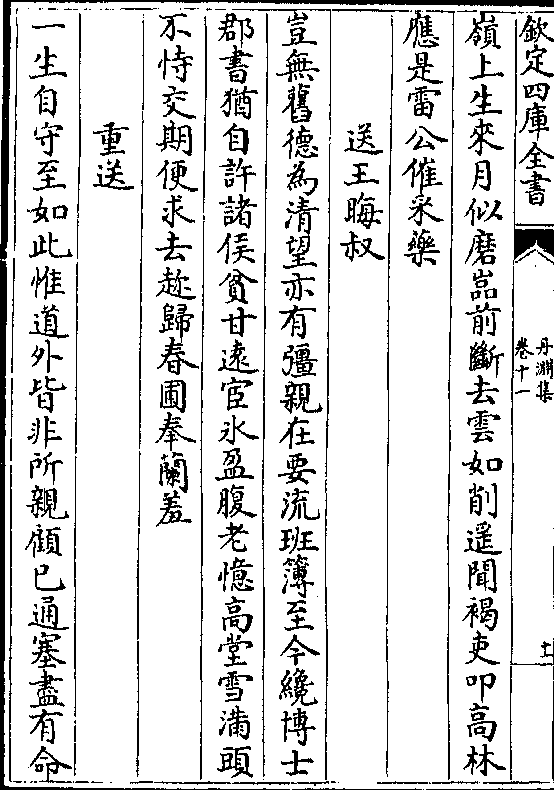 欽定四庫全書
丹淵集
卷十一
十二
嶺上生來月似磨嵓前斷去雲如削遥聞褐吏叩高林
應是雷公催采藥
送王晦叔
豈無舊德為清望亦有彊親在要流班簿至今纔博士
郡書猶自許諸侯貧甘逺宦氷盈腹老憶高堂雪滿頭
不恃交期便求去趂歸春圃奉蘭羞
重送
一生自守至如此惟道外皆非所親顧已通塞盡有命